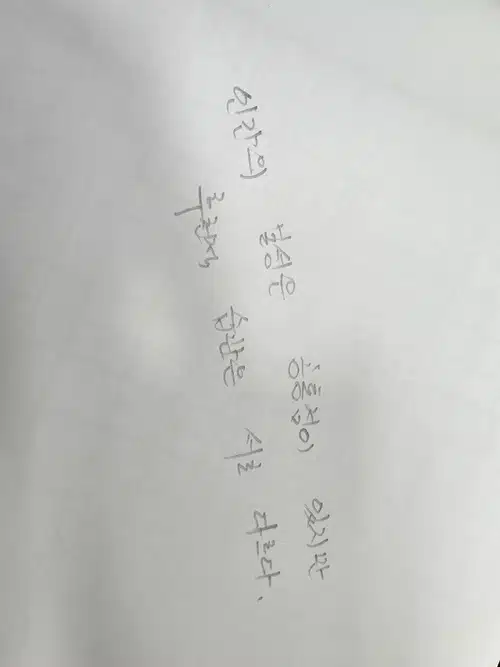 인간의 본성은 공통점이 있지만
후천적 습관은 서로 다르다.